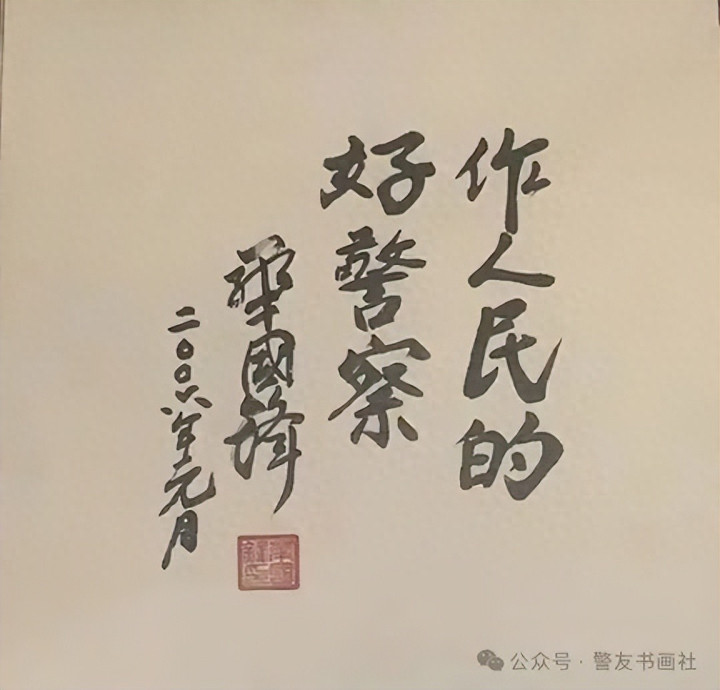 作人民的
好警察
華國鋒
二〇〇六年元月
公众号·警友书画社